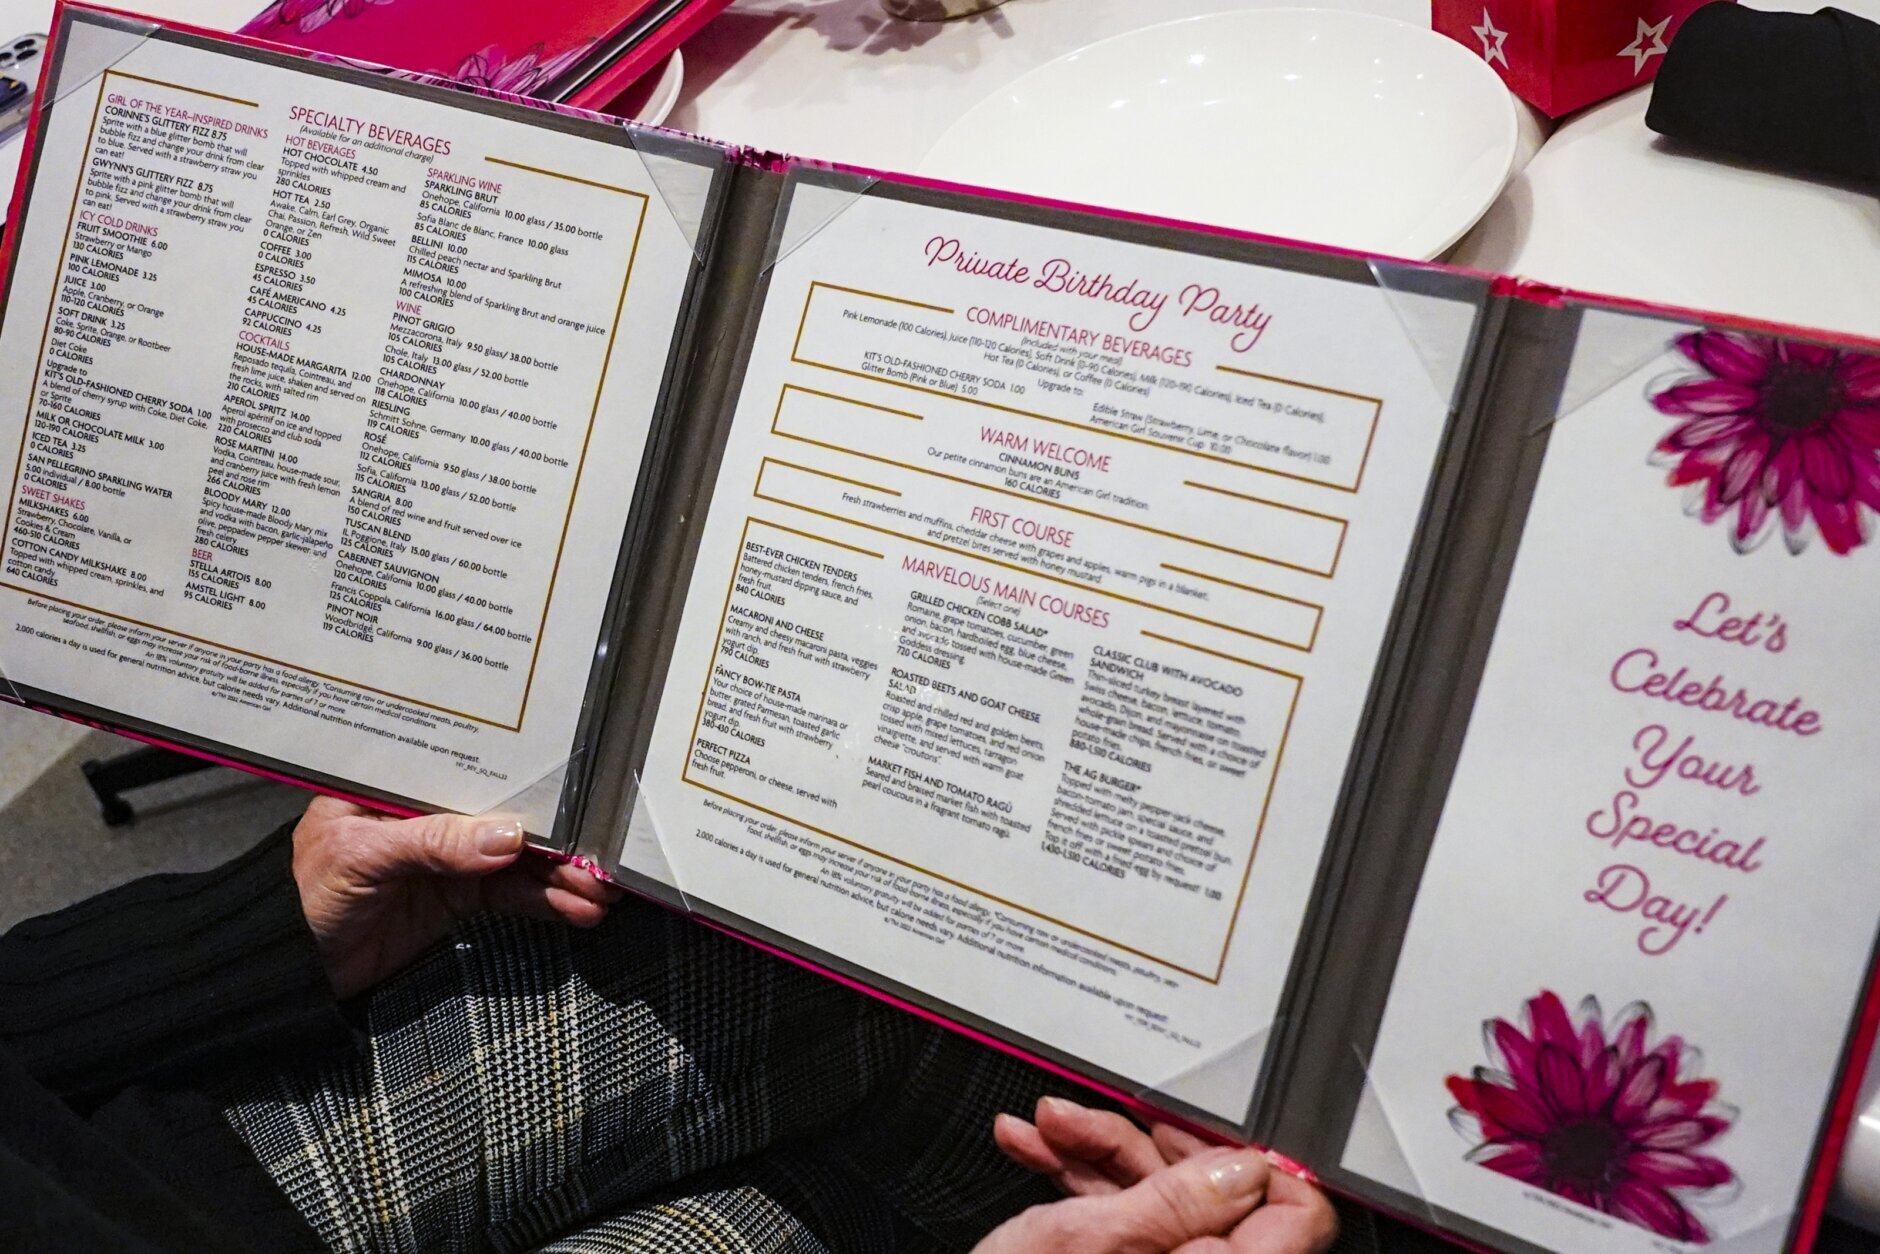 GIRL OF THE YEAR–INSPIRED DRINKS
CORINNE'S GLITTERY FIZZ 8.75
Sprite with a blue glitter bomb that will
bubble fizz and change your drink from clear
to blue. Served with a strawberry straw you
can eat!
GWYNN'S GLITTERY FIZZ 8.75
Sprite with a pink glitter bomb that will
bubble fizz and change your drink from clear
to pink. Served with a strawberry straw you
can eat!
ICY COLD DRINKS
FRUIT SMOOTHIE 6.00
Strawberry or Mango
130 CALORIES
PINK LEMONADE 3.25
100 CALORIES
JUICE 3.00
Apple, Cranberry, or Orange
110-120 CALORIES
SOFT DRINK 3.25
Coke, Sprite, Orange, or Rootbeer
80-90 CALORIES
Diet Coke
0 CALORIES
Upgrade to
KIT'S OLD-FASHIONED CHERRY SODA 1.00
A blend of cherry syrup with Coke, Diet Coke,
or Sprite
70-160 CALORIES
MILK OR CHOCOLATE MILK 3.00
120-190 CALORIES
ICED TEA 3.25
0 CALORIES
SAN PELLEGRINO SPARKLING WATER
5.00 individual / 8.00 bottle
0 CALORIES
SWEET SHAKES
MILKSHAKES 6.00
Strawberry, Chocolate, Vanilla, or
Cookies & Cream
460-510 CALORIES
COTTON CANDY MILKSHAKE 8.00
Topped with whipped cream, sprinkles, and
cotton candy
640 CALORIES
SPECIALTY BEVERAGES
(Available for an additional charge)
HOT BEVERAGES
HOT CHOCOLATE 4.50
Topped with whipped cream and
sprinkles
280 CALORIES
HOT TEA 2.50
Awake, Calm, Earl Grey, Organic
Chai, Passion, Refresh, Wild Sweet
Orange, or Zen
0 CALORIES
COFFEE 3.00
0 CALORIES
ESPRESSO 3.50
45 CALORIES
CAFÉ AMERICANO 4.25
45 CALORIES
CAPPUCCINO 4.25
92 CALORIES
COCKTAILS
HOUSE-MADE MARGARITA 12.00
Reposado tequila, Cointreau, and
fresh lime juice, shaken and served on
the rocks, with salted rim
210 CALORIES
APEROL SPRITZ 14.00
Aperol apéritif on ice and topped
with prosecco and club soda
220 CALORIES
ROSE MARTINI 14.00
Vodka, Cointreau, house-made sour,
and cranberry juice with fresh lemon
peel and rose rim
266 CALORIES
BLOODY MARY 12.00
Spicy house-made Bloody Mary mix
and vodka with bacon, garlic-jalapeño
olive, peppadew pepper skewer, and
fresh celery
280 CALORIES
BEER
STELLA ARTOIS 8.00
155 CALORIES
AMSTEL LIGHT 8.00
95 CALORIES
SPARKLING WINE
SPARKLING BRUT
Onehope, California 10.00 glass / 35.00 bottle
85 CALORIES
Sofia Blanc de Blanc, France 10.00 glass
85 CALORIES
BELLINI 10.00
Chilled peach nectar and Sparkling Brut
115 CALORIES
MIMOSA 10.00
A refreshing blend of Sparkling Brut and orange juice
100 CALORIES
WINE
PINOT GRIGIO
Mezzacorona, Italy 9.50 glass/ 38.00 bottle
105 CALORIES
Chole, Italy 13.00 glass / 52.00 bottle
105 CALORIES
CHARDONNAY
Onehope, California 10.00 glass / 40.00 bottle
118 CALORIES
RIESLING
Schmitt Sohne, Germany 10.00 glass / 40.00 bottle
119 CALORIES
ROSÉ
Onehope, California 9.50 glass / 38.00 bottle
112 CALORIES
Sofia, California 13.00 glass / 52.00 bottle
115 CALORIES
SANGRIA 8.00
A blend of red wine and fruit served over ice
150 CALORIES
TUSCAN BLEND
IL Poggione, Italy 15.00 glass / 60.00 bottle
125 CALORIES
CABERNET SAUVIGNON
Onehope, California 10.00 glass / 40.00 bottle
120 CALORIES
Francis Coppola, California 16.00 glass / 64.00 bottle
125 CALORIES
PINOT NOIR
Woodbridge, California 9.00 glass / 36.00 bottle
119 CALORIES
Before placing your order, please inform your server if anyone in your party has a food allergy. *Consuming raw or undercooked meats, poultry,
seafood, shellfish, or eggs may increase your risk of food-borne illness, especially if you have certain medical conditions.
An 18% voluntary gratuity will be added for parties of 7 or more.
2,000 calories a day is used for general nutrition advice, but calorie needs vary. Additional nutrition information available upon request.
©/TM 2022 American Girl
NY_BEV_SQ_FALL22
Private Birthday Party
COMPLIMENTARY BEVERAGES
(Included with your meal)
Pink Lemonade (100 Calories), Juice (110-120 Calories), Soft Drink (0-90 Calories), Milk (120-190 Calories), Iced Tea (0 Calories),
Hot Tea (0 Calories), or Coffee (0 Calories)
Upgrade to:
KIT'S OLD-FASHIONED CHERRY SODA 1.00
Glitter Bomb (Pink or Blue) 5.00
Edible Straw (Strawberry, Lime, or Chocolate flavor) 1.00
American Girl Souvenir Cup 10.00
WARM WELCOME
CINNAMON BUNS
Our petite cinnamon buns are an American Girl tradition.
160 CALORIES
FIRST COURSE
Fresh strawberries and muffins, cheddar cheese with grapes and apples, warm pigs in a blanket,
and pretzel bites served with honey mustard
MARVELOUS MAIN COURSES
(Select one)
BEST-EVER CHICKEN TENDERS
Battered chicken tenders, french fries,
honey-mustard dipping sauce, and
fresh fruit
840 CALORIES
MACARONI AND CHEESE
Creamy and cheesy macaroni pasta, veggies
with ranch, and fresh fruit with strawberry
yogurt dip.
790 CALORIES
FANCY BOW-TIE PASTA
Your choice of house-made marinara or
butter, grated Parmesan, toasted garlic
bread, and fresh fruit with strawberry
yogurt dip.
380-430 CALORIES
PERFECT PIZZA
Choose pepperoni, or cheese, served with
fresh fruit.
GRILLED CHICKEN COBB SALAD*
Romaine, grape tomatoes, cucumber, green
onion, bacon, hardboiled egg, blue cheese,
and avocado tossed with house-made Green
Goddess dressing.
720 CALORIES
ROASTED BEETS AND GOAT CHEESE
SALAD
Roasted and chilled red and golden beets,
crisp apple, grape tomatoes, and red onion
tossed with mixed lettuces, tarragon
vinaigrette, and served with warm goat
cheese "croutons".
MARKET FISH AND TOMATO RAGÙ
Seared and braised market fish with toasted
pearl coucous in a fragrant tomato ragù.
CLASSIC CLUB WITH AVOCADO
SANDWICH
Thin-sliced turkey breast layered with
Swiss cheese, bacon, lettuce, tomato,
avocado, Dijon, and mayonnaise on toasted
whole-grain bread. Served with a choice of
house-made chips, french fries, or sweet
potato fries.
880-1,510 CALORIES
THE AG BURGER*
Topped with melty pepper-jack cheese,
bacon-tomato jam, special sauce, and
shredded lettuce on a toasted pretzel bun.
Served with pickle spears and choice of
french fries or sweet potato fries.
Top it off with a fried egg by request! 1.00
1,430-1,510 CALORIES
Before placing your order, please inform your server if anyone in your party has a food allergy. *Consuming raw or undercooked meats, poultry,
food, shellfish, or eggs may increase your risk of food-borne illness, especially if you have certain medical conditions.
An 18% voluntary gratuity will be added for parties of 7 or more.
2,000 calories a day is used for general nutrition advice, but calorie needs vary. Additional nutrition information available upon request.
©/TM 2022 American Girl
Let's
Celebrate
Your
Special
Day!